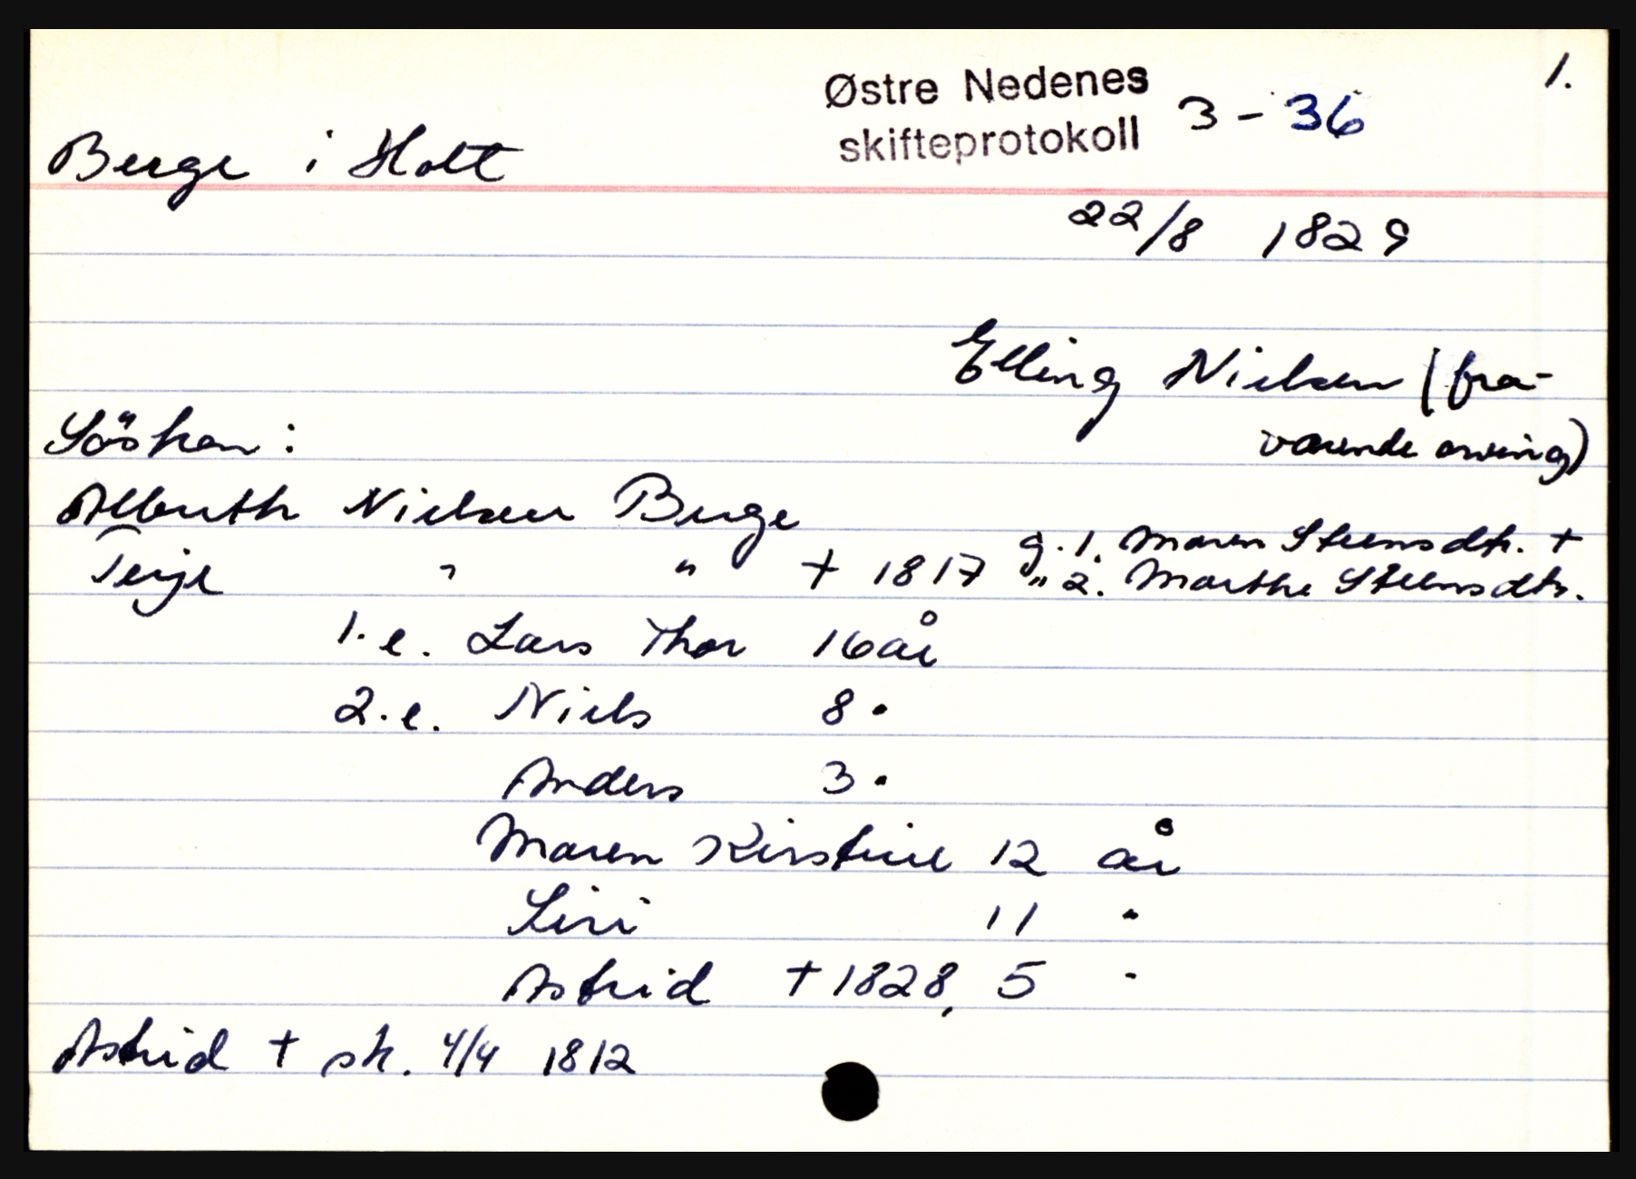 1.
Østre Nedenes
skifteprotokoll 3 - 36
Berge i Holt
22/8 1829
Elling Nielsen (fra-
værende arving)
Sösken:
Nielsen Berge
Terje " " + 1817 g. 1. Maren Steensdtr. +
" 2. Marthe Steensdtr.
1. e. Lars Thor 16 år
2. e. Niels 8 "
Anders 3 "
Maren Kirstine 12 år
Siri 11 "
Astrid + 1828, 5 "
Astrid + sk. 4/4 1812